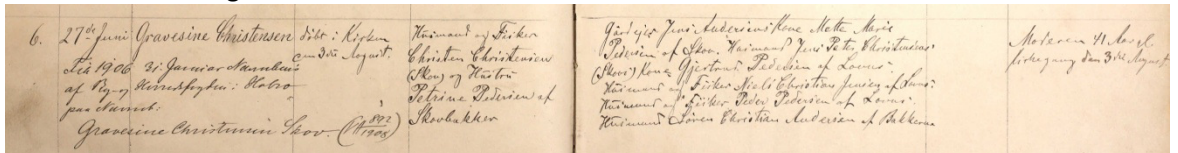 6.
27de Juni
Gravesine Christensen
Fik 1906 31 Januar Navnbevis
af By- og Herredsfogden i Hobro
paa Navnet:
Gravesine Christensen Skov. (892/1905)
døbt i Kirken
den 3die August.
Huusmand og Fisker
Christen Christensen
(Skov) og Hustru
Petrine Pedersen af
Skovbakken
Gårdejer Jens Andersens Kone Mette Marie
Pedersen af Skov. Huusmand Jens Peter Christensens
(Skovs) Kone Gjertrud Pedersen af Lovns.
Huusmand og Fisker Niels Christian Jensen af Lovns.
Huusmand og Fisker Peder Pedersen af Lovns.
Huusmand Søren Christian Andersen af Bakkerne
Moderen 41 Aar gl.
Kirkegang den 3die August